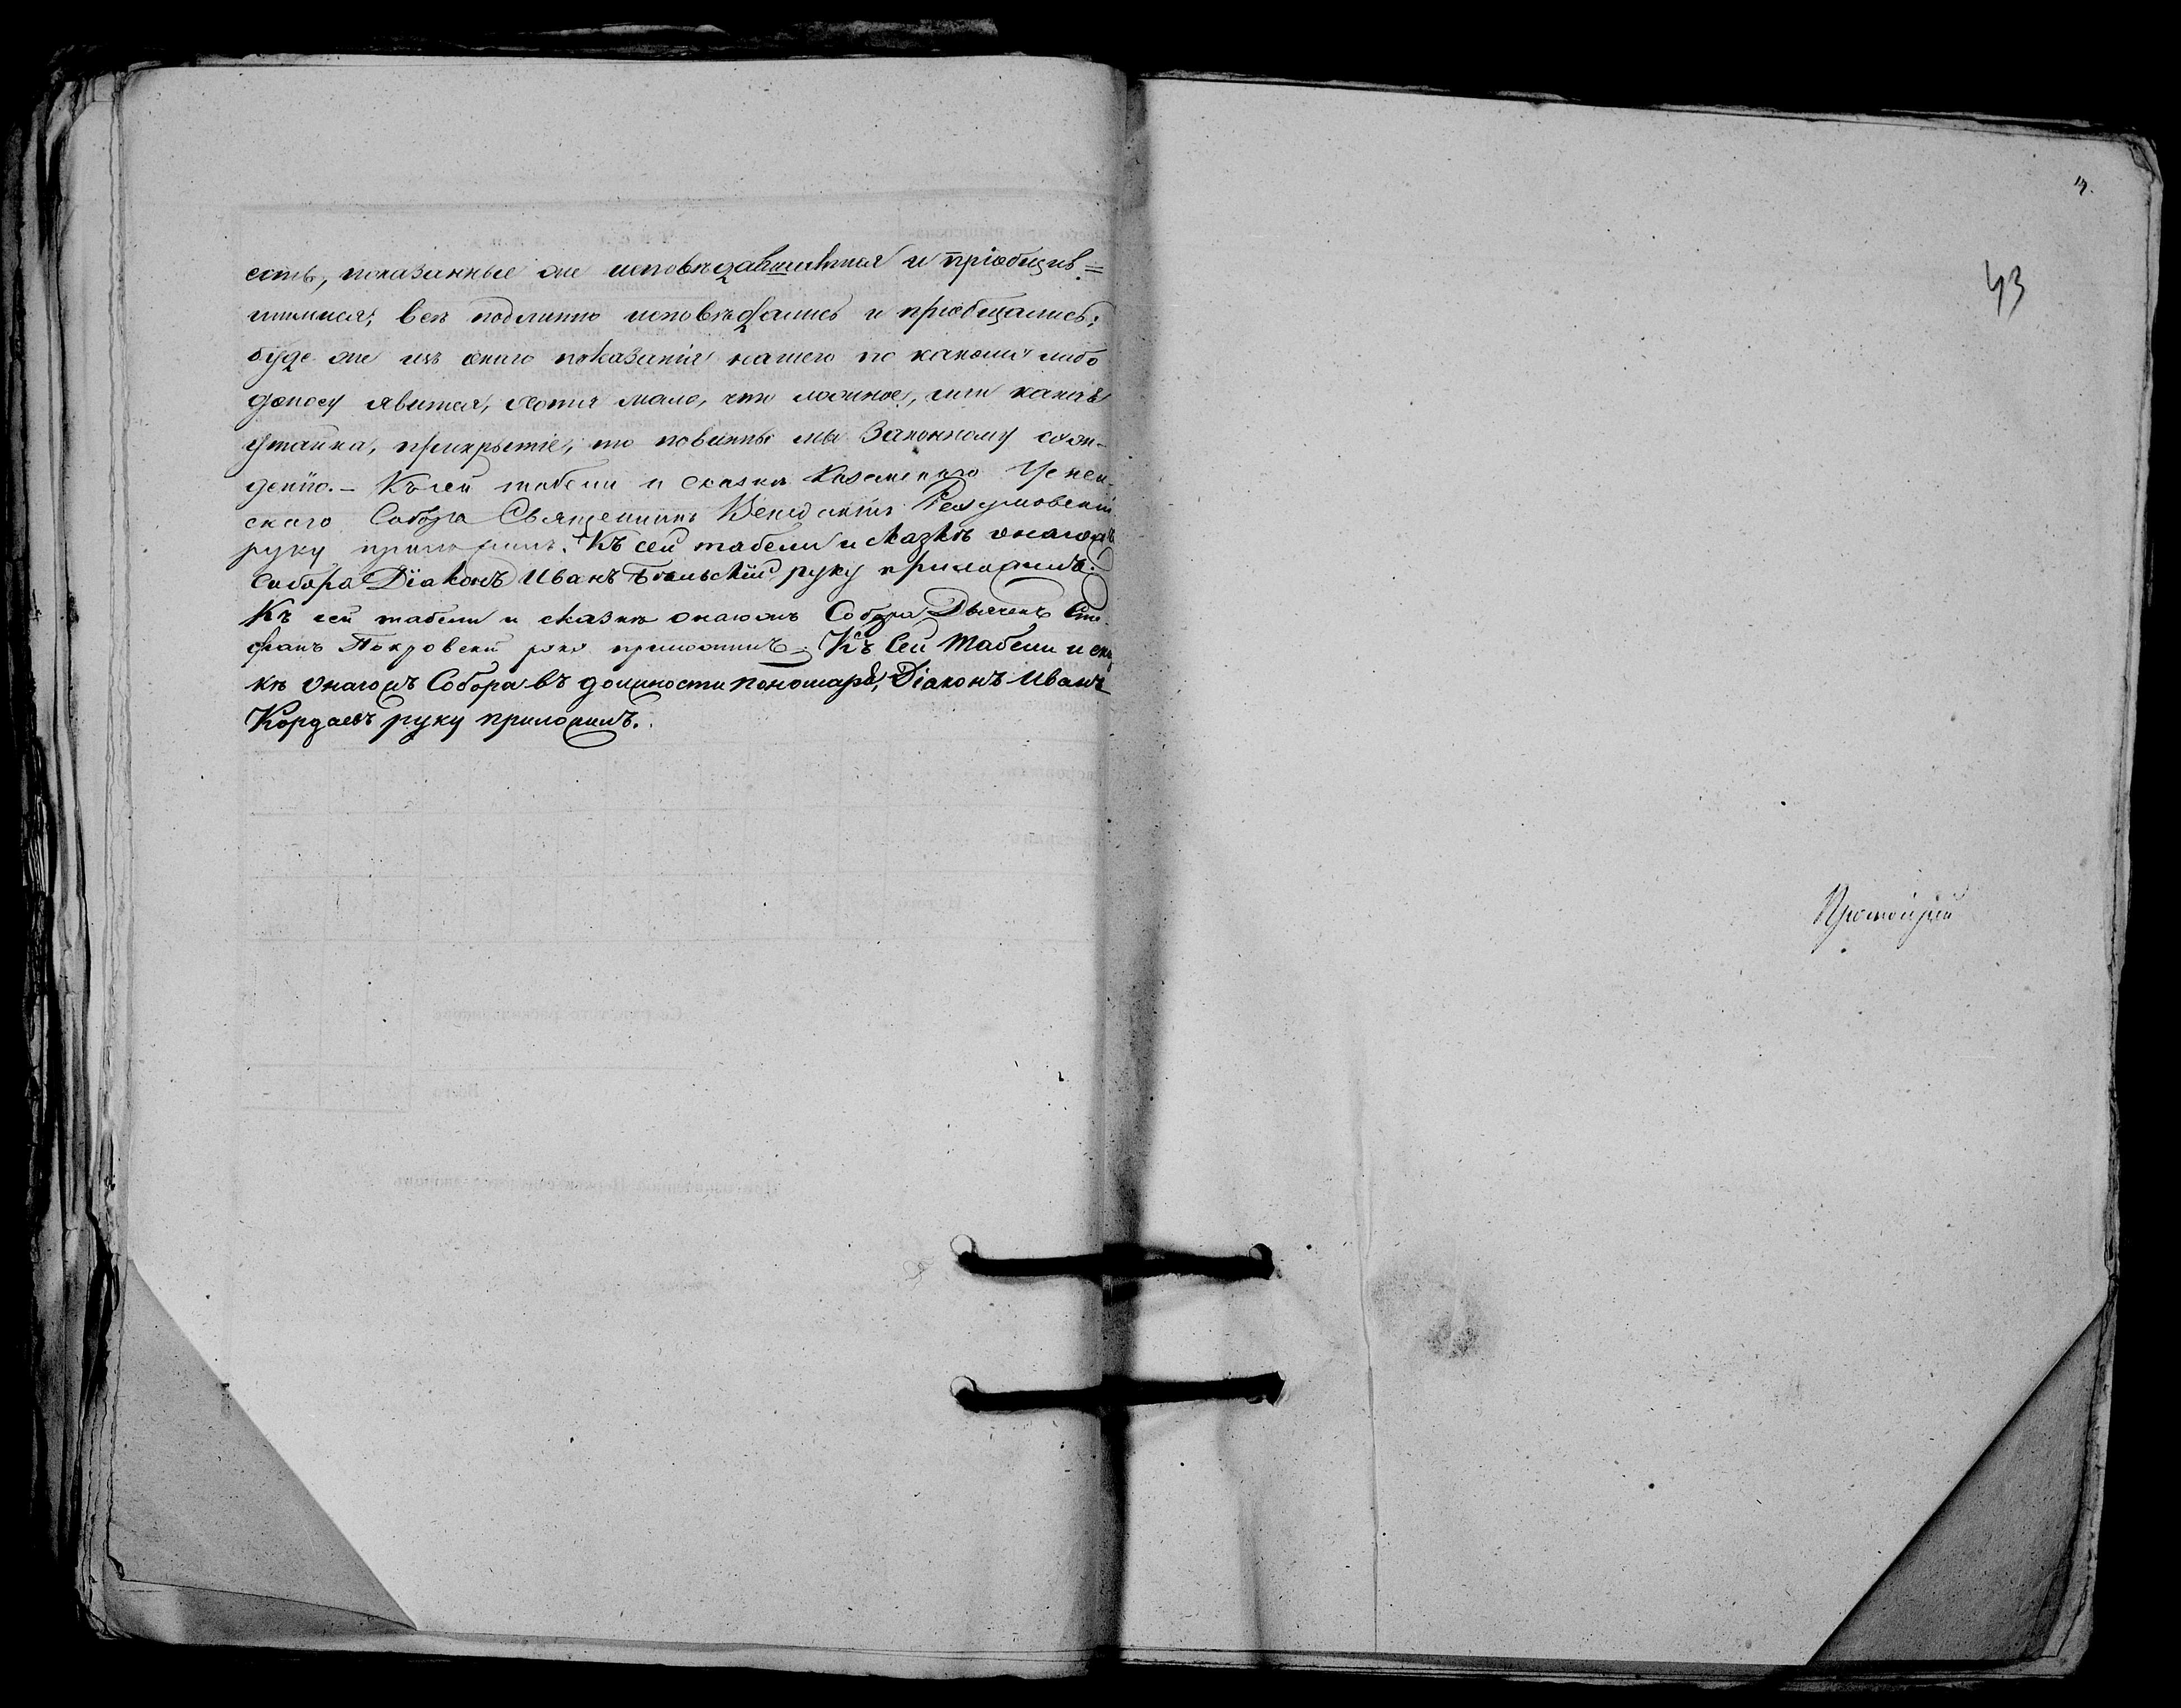 есть, показанные же исповѣдавшимися и пріобщив=
шимися, всѣ подлинно исповѣдались и пріобщались;
буде же изъ онаго показанія нашего по какому либо
доносу явится, хотя мало, что ложное, или какая
утайка, прикрытіе, то повинны мы Законному суж-
денію. – Къ сей табели и сказкѣ Успен-
скаго Собора Священникъ Разумовскій
руку приложилъ. Къ сей табели и сказкѣ онагожъ
Собора Діаконъ Иванъ руку приложилъ.
Къ сей табели и сказкѣ онагожъ Собора Дьячекъ Сте-
фанъ Покровскій руку приложилъ. Къ сей табели и сказ
кѣ онагожъ Собора въ должности пономаря, Діаконъ Иванъ
Кордаевъ руку приложилъ.
43
Протоіерей